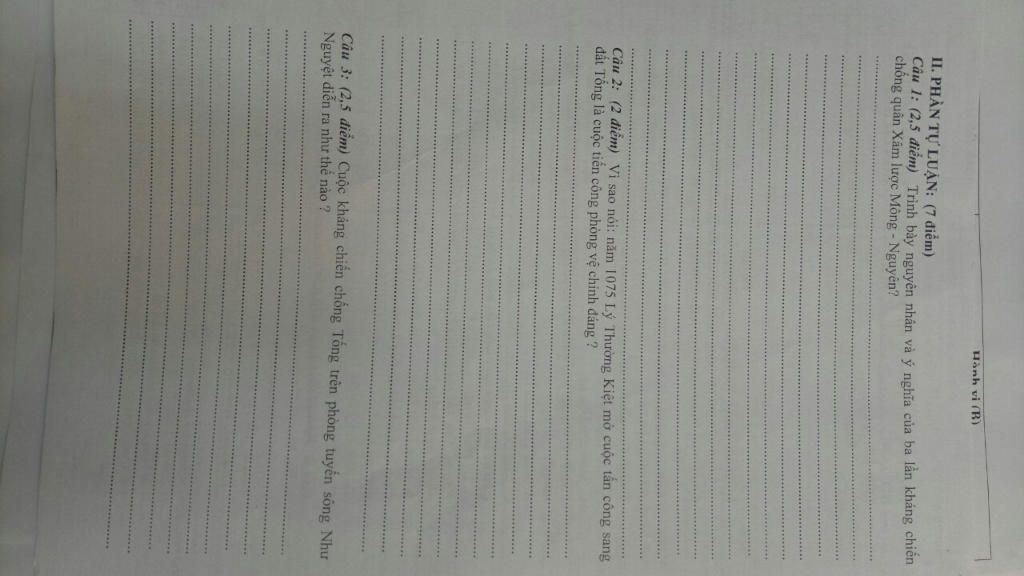 Hành vi (B)
II. PHẦN TỰ LUẬN: (7 điểm)
Câu 1: (2,5 điểm) Trình bày nguyên nhân và ý nghĩa của ba lần kháng chiến
chống quân Xâm lược Mông - Nguyên?
Câu 2: (2 điểm) Vì sao nói: năm 1075 Lý Thường Kiệt mở cuộc tấn công sang
đất Tống là cuộc tiến công phòng vệ chính đáng ?
Câu 3: (2,5 điểm) Cuộc kháng chiến chống Tống trên phòng tuyến sông Như
Nguyệt diễn ra như thế nào ?